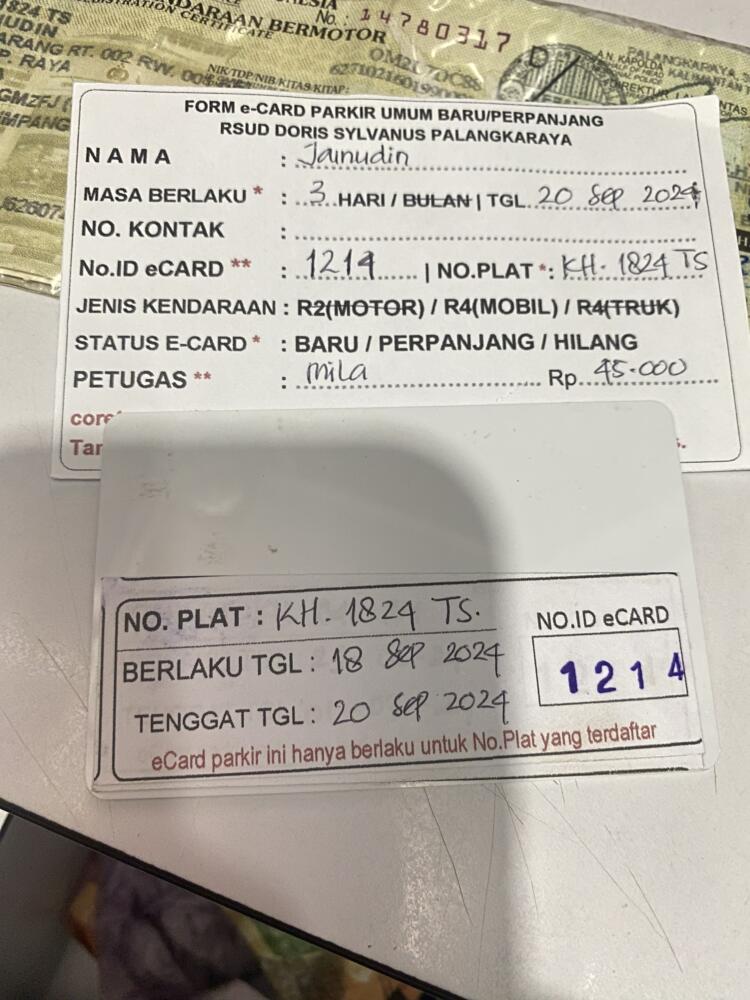 1824 TS
No.: 14780317
NDARAAN BERMOTOR
UDIN
ARANG RT. 002 RW. 00
P. RAYA
NIK/TDP/NIB/KITAS/KITAP:
A.N. KAPOLDA
FORM e-CARD PARKIR UMUM BARU/PERPANJANG
RSUD DORIS SYLVANUS PALANGKARAYA
NAMA : Jainudin
MASA BERLAKU * : 3 HARI / BULAN | TGL. 20 Sep 2024
NO. KONTAK :
No.ID eCARD ** : 1214 | NO.PLAT *: KH. 1824 TS
JENIS KENDARAAN : R2(MOTOR) / R4(MOBIL) / R4(TRUK)
STATUS E-CARD * : BARU / PERPANJANG / HILANG
PETUGAS ** : Mila Rp. 45.000
NO. PLAT : KH. 1824 TS.
NO.ID eCARD
BERLAKU TGL : 18 Sep 2024
1214
TENGGAT TGL : 20 Sep 2024
eCard parkir ini hanya berlaku untuk No.Plat yang terdaftar